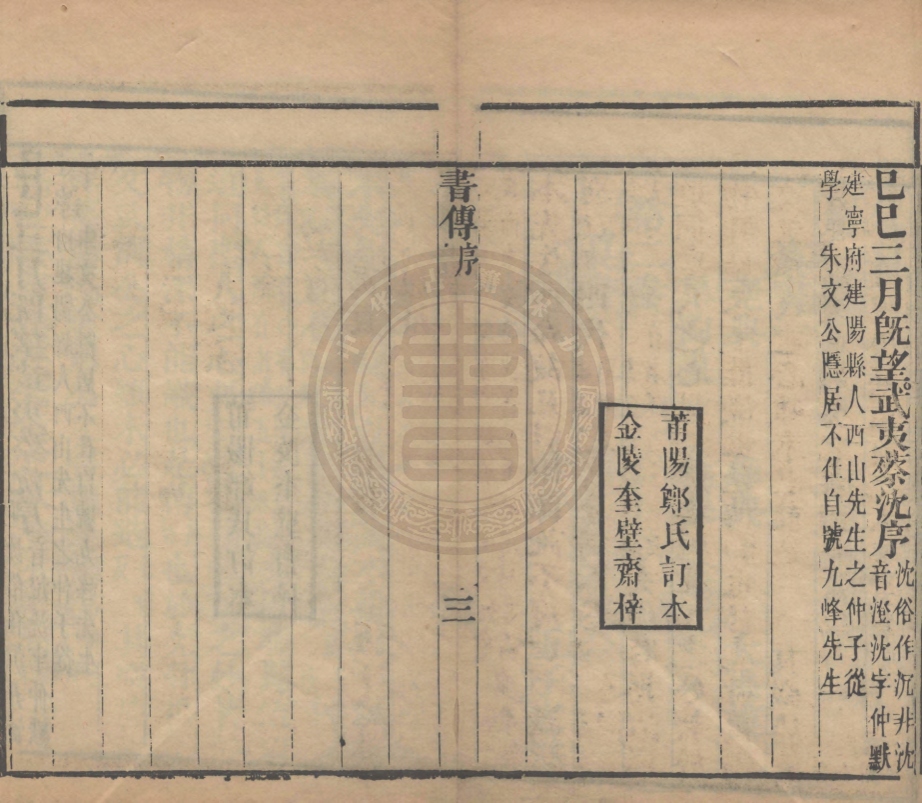 巳巳三月旣望武夷蔡沈序沈俗作沉非沈
音澄沈字仲默
建寧府建陽縣人西山先生之仲子從
學朱文公隱居不仕自號九峰先生
莆陽鄭氏訂本
金陵奎壁齋梓
書傳序
三